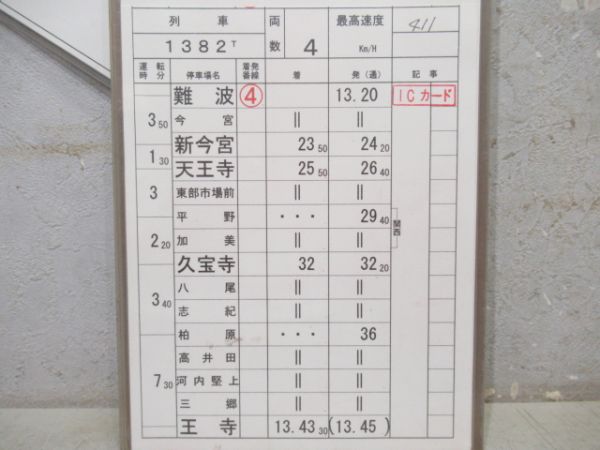 列 車 両 数 4 最高速度 Km/H 411
1382T
運転時分 停車場名 着発番線 着 発(通) 記事
難波 ④ 13.20 ICカード
3 50
今宮 || ||
新今宮 23 50 24 20
1 30
天王寺 25 50 26 40
3
東部市場前 || ||
平野 ・・・ 29 40 関西
2 20
加美 || ||
久宝寺 32 32 20
八尾 || ||
3 40
志紀 || ||
柏原 ・・・ 36
高井田 || ||
7 30
河内堅上 || ||
三郷 || ||
王寺 13.43 30 (13.45)